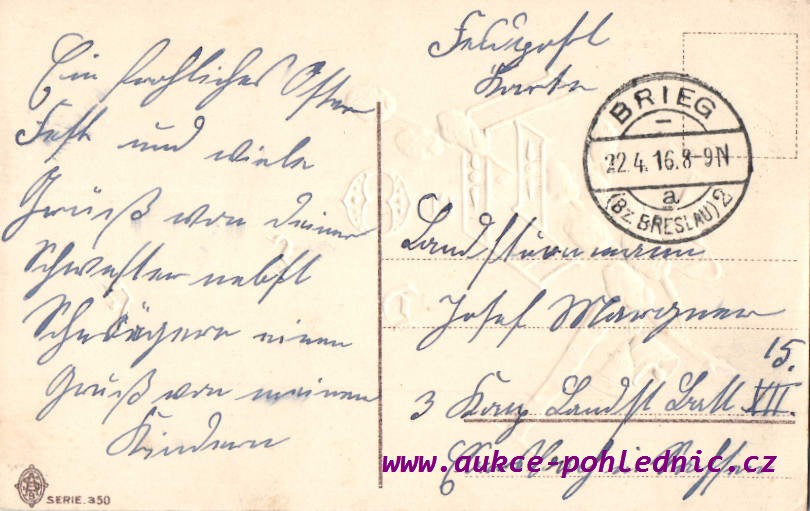 Ein frohliches Oster
Fest und viele
Grüß von deiner
Schwester nebst
Schwägern einen
Gruß von meinen
Kindern
SERIE. 350
Feldpost
Karte
BRIEG
22.4.16.8-9N
a
(Bz. BRESLAU) 2
Landsturmmann
Josef Margner
15.
3 Komp Landst Batl VII.
www.aukce-pohlednic.cz